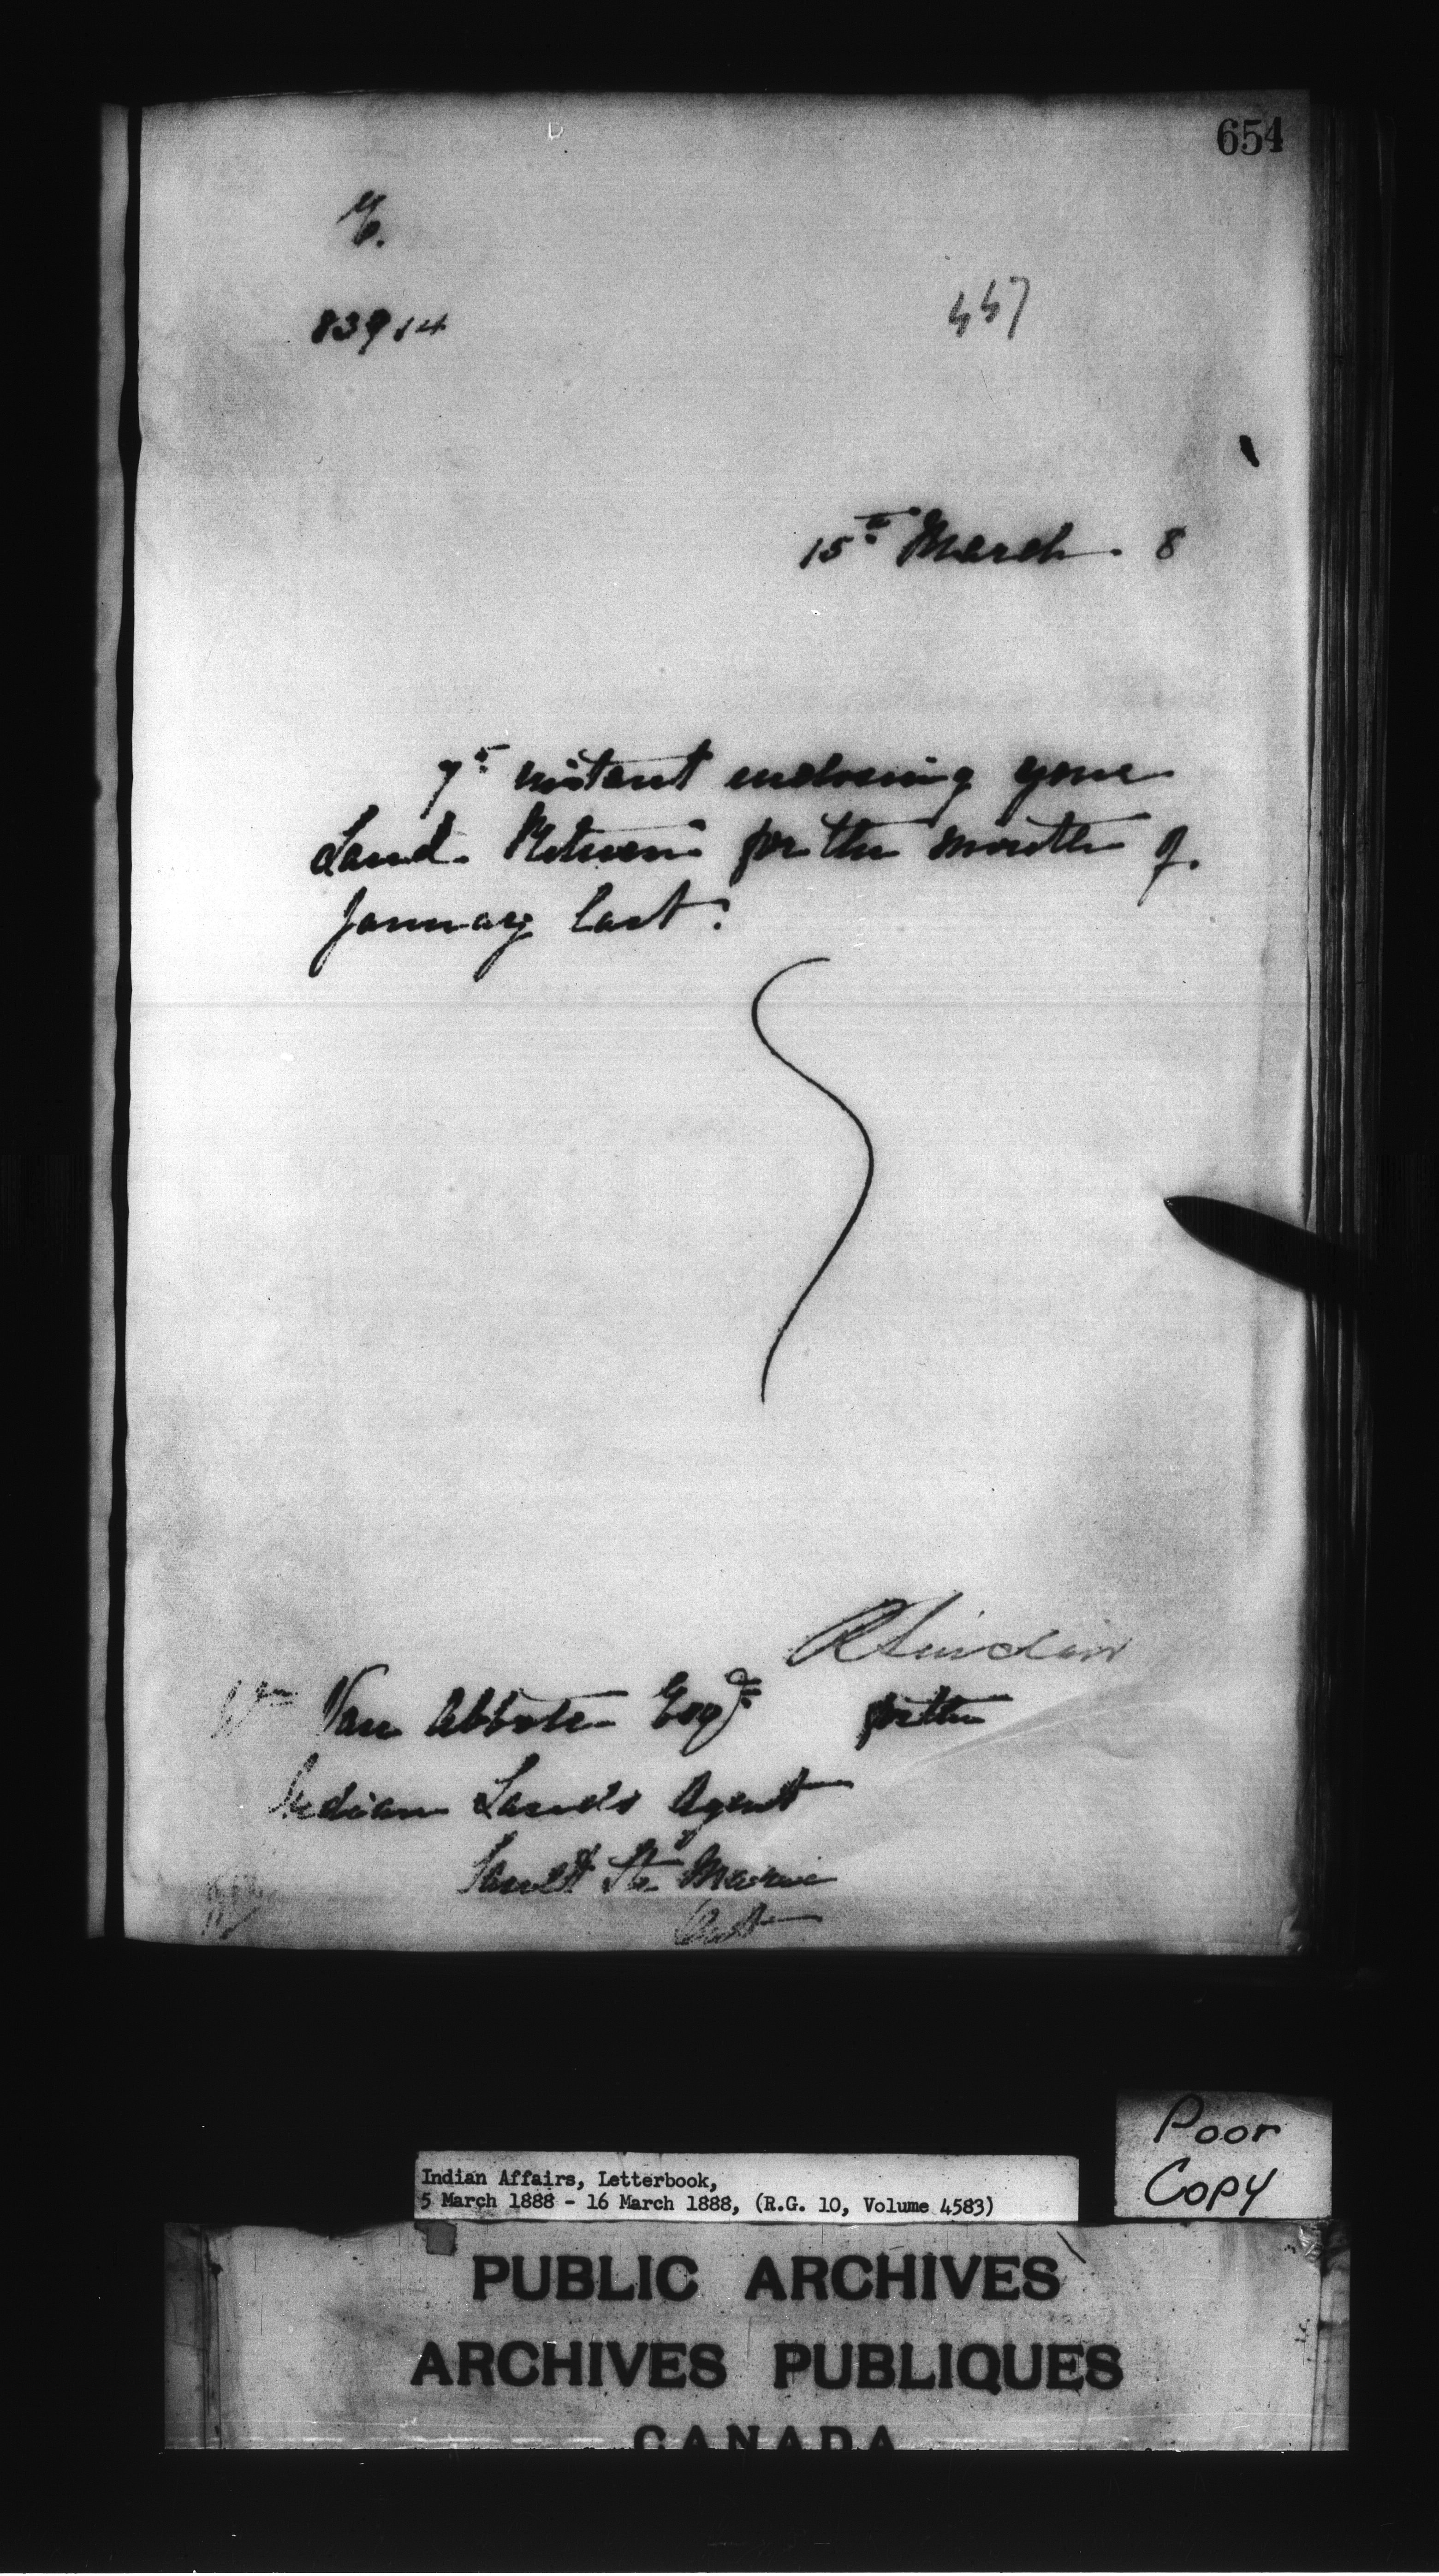 654
83914
447
15th March. 8
7th instant enclosing your
Land Returns for the month of
January last.
R Sinclair
Wm Van Abbott Esqre for the
Indian Lands Agent
Sault Ste Marie
Ont
Poor
Copy
Indian Affairs, Letterbook,
5 March 1888 - 16 March 1888, (R.G. 10, Volume 4583)
PUBLIC ARCHIVES
ARCHIVES PUBLIQUES
CANADA